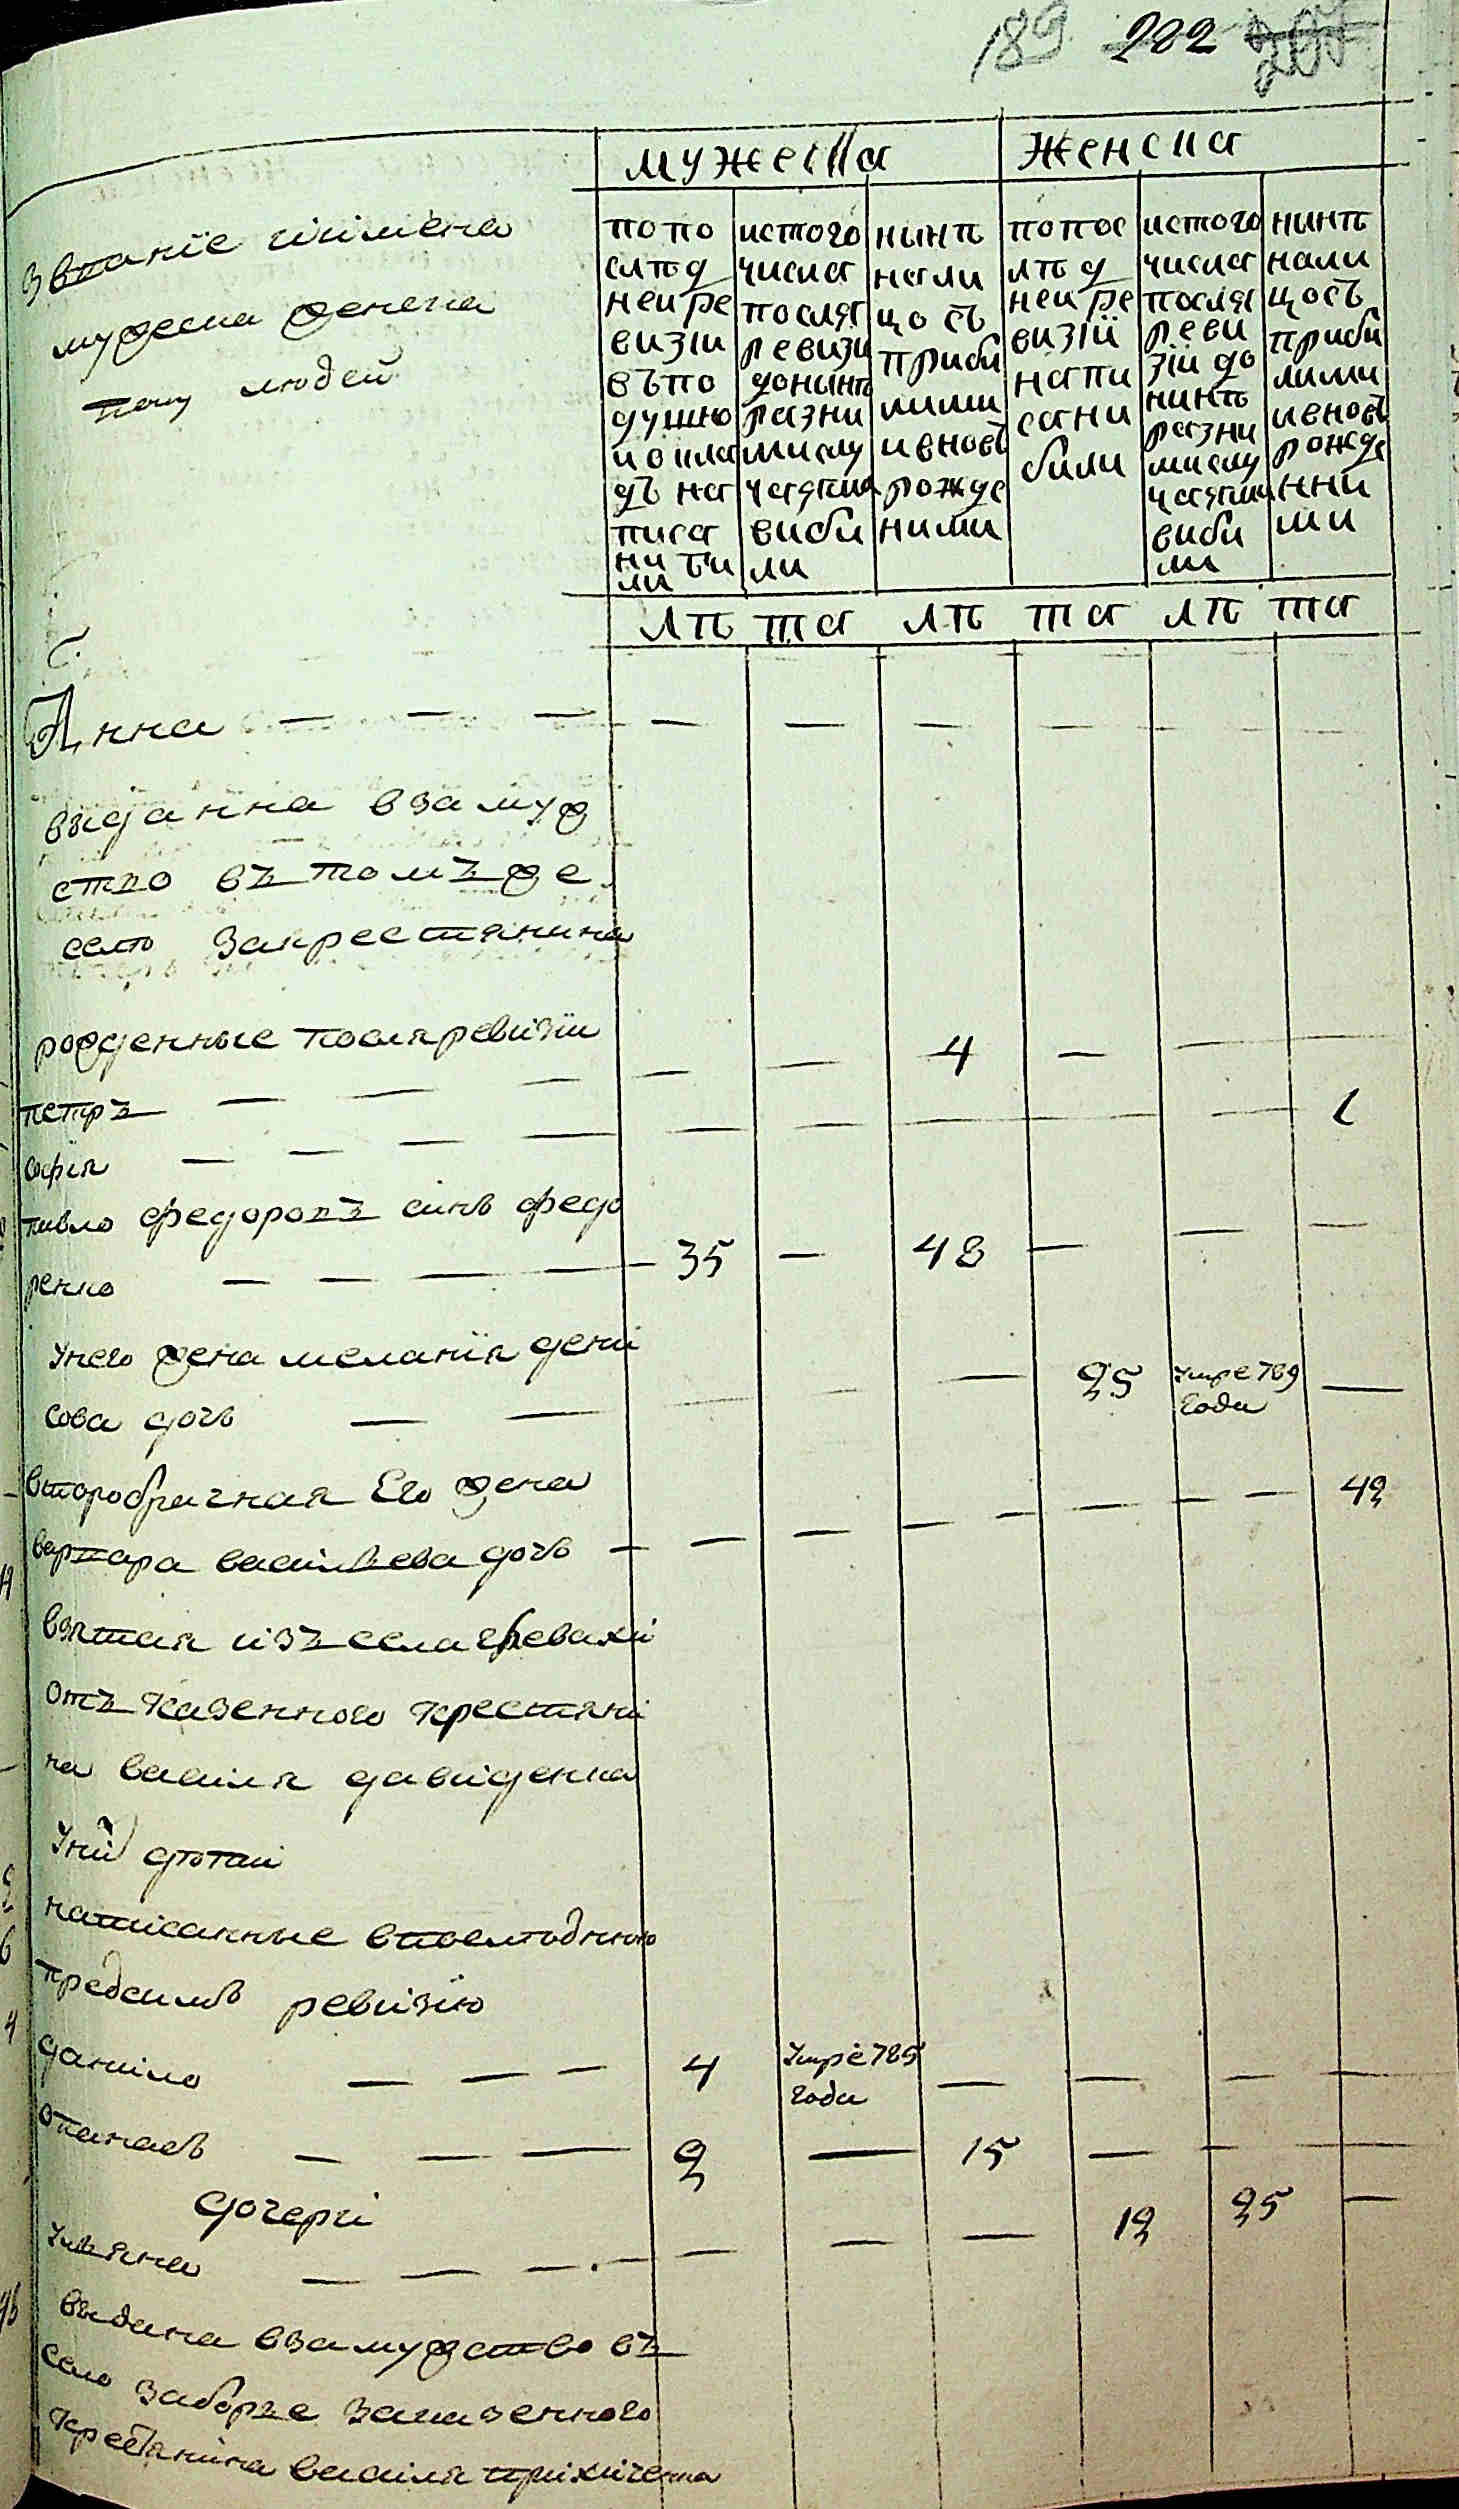 189 202
мужеска женска
Званїе иимена
мужеска женска
полу людей
попо
слѣд
ней ре
визіи
въпо
душно
й окла
дъ на
писа
ни би
ли
истого
числа
посляѣ
ревизи
донынѣ
разни
ми слу
чаями
виби
ли
нынѣ
нали
цо съ
приби
лими
ивновь
рожде
ними
попос
лѣд
ней ре
визїй
напи
сани
били
истого
числа
посляѣ
реви
зїи до
нинѣ
разни
ми слу
чаями
виби
ли
нинѣ
нали
цо съ
приби
лими
ивновь
рожде
нни
ми
лѣта лѣта лѣта
Анна — — — — — — — — —
выданна взамуж
ство въ томъ же
селѣ закрестянина
рожденные посляревїзїи
петръ — — — — — 4 — — —
софія — — — — — — — — 1
павло федоровъ синъ федо
ренко — — — — 35 — 48 — — —
унего жена меланїя дени
сова дочь — — — — — 25 умре 789 —
годи
второбрачная Его жена
варвара васілïева дочь — — — — — — — — 42
взятая ізъ села
отъ казенного крестяни
на васіля давіденка
Уній дѣтіи
напісанные впослѣднюю
предсимъ ревізїю
даніло — — — 4 Умре 785 — — — —
годи
опанасъ — — — 2 — 15 — — —
дочеріи
Уляна — — — — — — — 12 25 —
выдана взамужство въ
село заборъе заказенного
крестяніна васіля